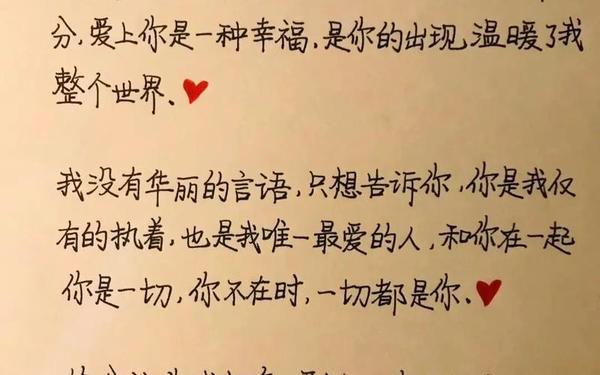 分,爱上你是一种幸福.是你的出现,温暖了我
整个世界.
我没有华丽的言语,只想告诉你,你是我仅
有的执着,也是我唯一最爱的人,和你在一起
你是一切,你不在时,一切都是你.